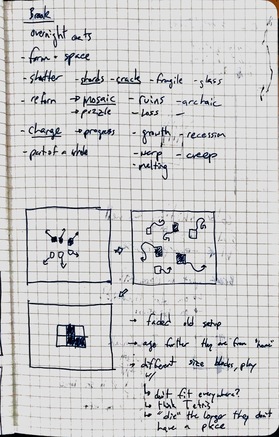 Break
overnight oats
- form - space
- shatter - shards - cracks - fragile - glass
- return → mosaic - ruins - archaic
→ puzzle - loss -
- change → progress - growth - recession
- part of a whole - warp - creep
- melting
→ old setup
→ age further they are from "home"
→ different size blocks, play
w/
↳ don't fit everywhere?
↳ think Tetris
↳ "die" the longer they don't
have a place